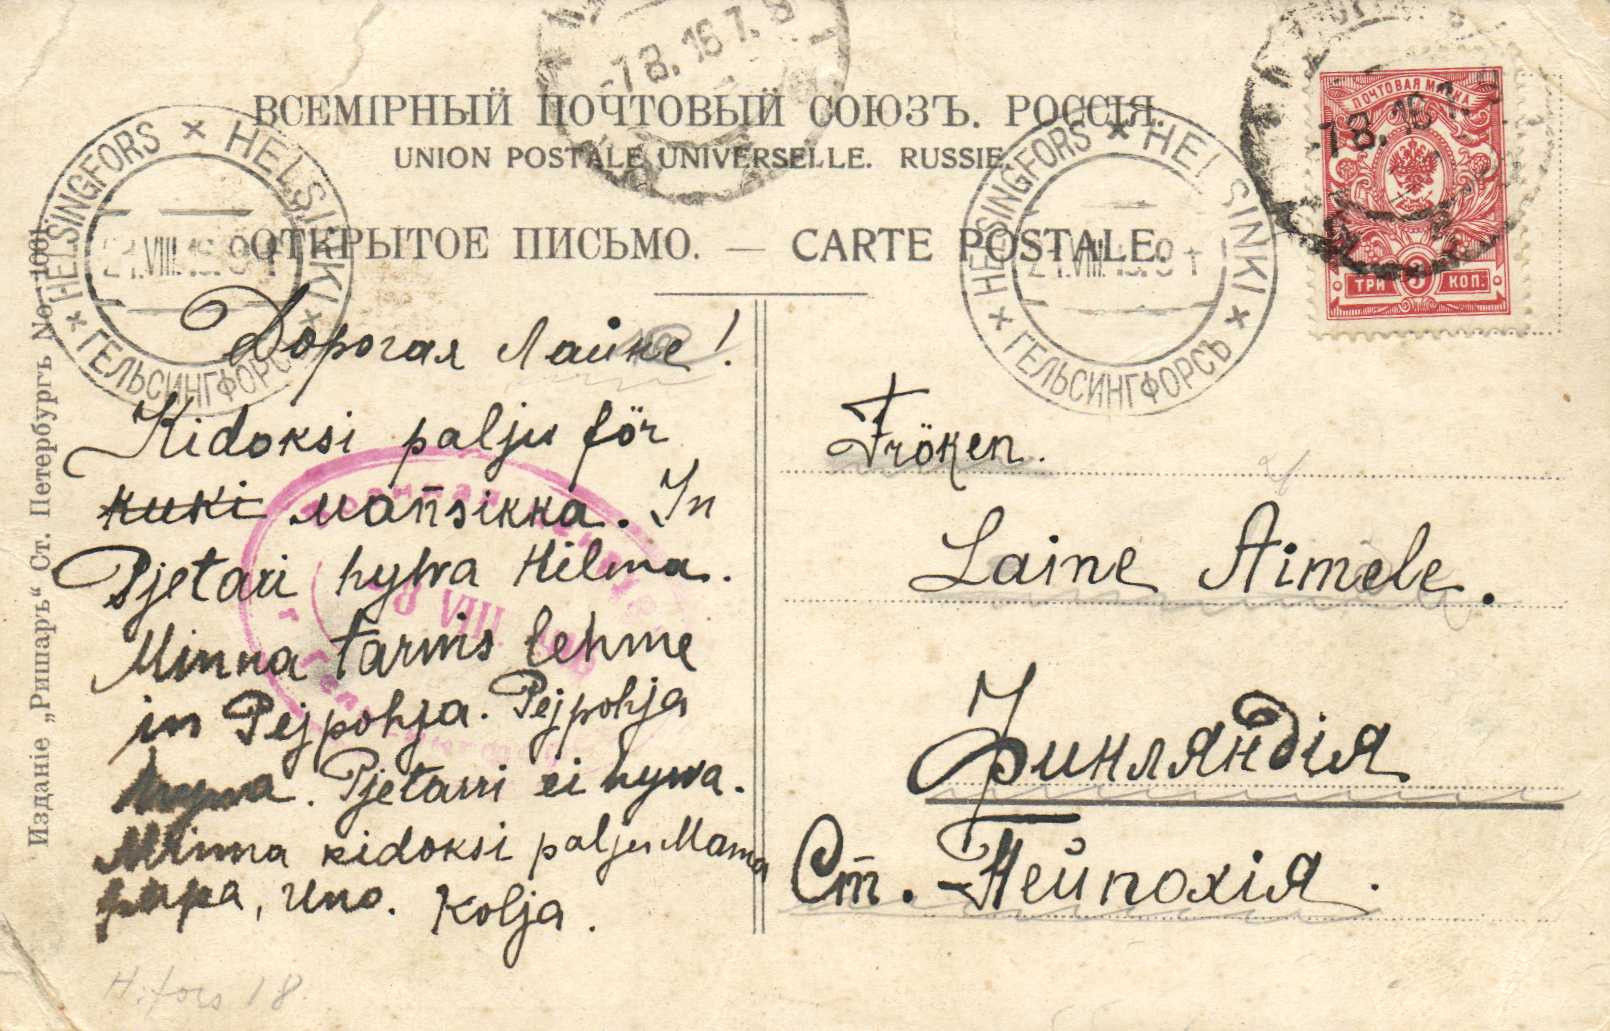 ВСЕМІРНЫЙ ПОЧТОВЫЙ СОЮЗЪ. РОССІЯ.
UNION POSTALE UNIVERSELLE. RUSSIE.
ОТКРЫТОЕ ПИСЬМО. — CARTE POSTALE.
ПОЧТОВАЯ МАРКА
ТРИ 3 КОП.
-7 8. 16
-7 8. 16 7. 8
HELSINGFORS × HELSINKI × ГЕЛЬСИНГФОРСЪ ×
VIII. 16. 9
HELSINGFORS × HELSINKI × ГЕЛЬСИНГФОРСЪ ×
21. VIII. 16. 9
Изданіе „Ришаръ“ Ст. Петербургъ No. 1001
Дорогая Лайне!
Kidoksi palju för
kuki mansikka. In
Pjetari hywa Hilma.
Minna tarvis lehme
in Pejpohja. Pejpohja
hywa. Pjetarri ei hywa.
Minna kidoksi palju Mama
papa, Uno. Kolja.
VIII
Fröken.
Laine Aimele.
Финляндія
Ст. Пейпохія.
H:fors 18